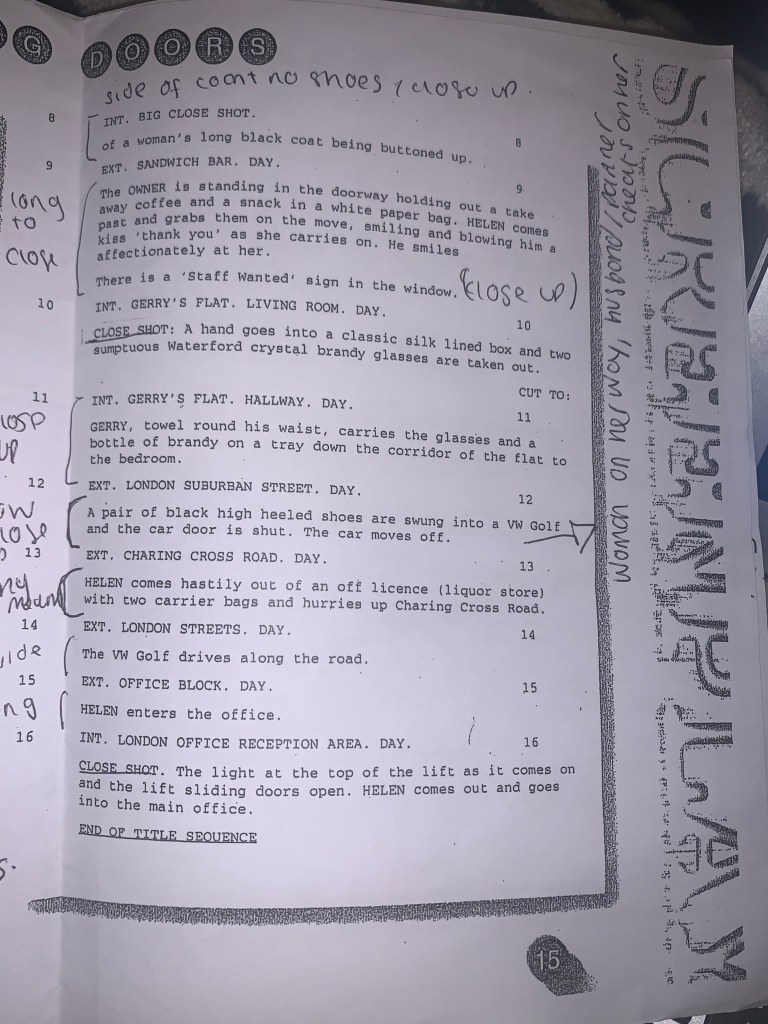 G DOORS
side of coat no shoes / close up.
8
INT. BIG CLOSE SHOT.
8
of a woman's long black coat being buttoned up.
9
EXT. SANDWICH BAR. DAY.
9
The OWNER is standing in the doorway holding out a take
away coffee and a snack in a white paper bag. HELEN comes
past and grabs them on the move, smiling and blowing him a
kiss 'thank you' as she carries on. He smiles
affectionately at her.
long
to
close
There is a 'Staff Wanted' sign in the window. (close up)
10
INT. GERRY'S FLAT. LIVING ROOM. DAY.
10
CLOSE SHOT: A hand goes into a classic silk lined box and two
sumptuous Waterford crystal brandy glasses are taken out.
CUT TO:
11
INT. GERRY'S FLAT. HALLWAY. DAY.
11
GERRY, towel round his waist, carries the glasses and a
bottle of brandy on a tray down the corridor of the flat to
the bedroom.
up
12
EXT. LONDON SUBURBAN STREET. DAY.
12
A pair of black high heeled shoes are swung into a VW Golf
and the car door is shut. The car moves off.
13
EXT. CHARING CROSS ROAD. DAY.
13
HELEN comes hastily out of an off licence (liquor store)
with two carrier bags and hurries up Charing Cross Road.
14
EXT. LONDON STREETS. DAY.
14
The VW Golf drives along the road.
15
EXT. OFFICE BLOCK. DAY.
15
HELEN enters the office.
16
INT. LONDON OFFICE RECEPTION AREA. DAY.
16
CLOSE SHOT. The light at the top of the lift as it comes on
and the lift sliding doors open. HELEN comes out and goes
into the main office.
END OF TITLE SEQUENCE
15
women on her way, husband/partner
cheats on her
SCREENPLAY